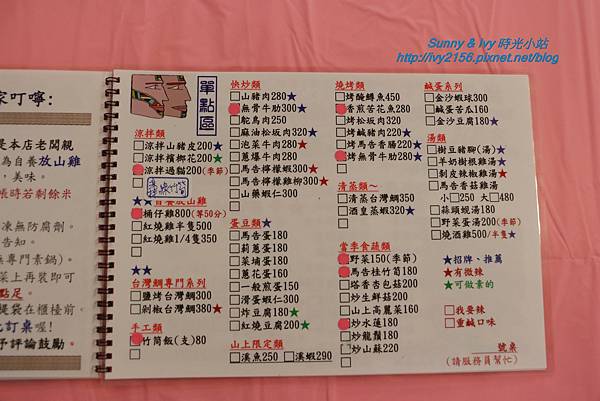 Sunny & Ivy 時光小站
http://ivy2156.pixnet.net/blog
家叮嚀:
是本店老闆親
為自養放山雞
，美味。
帳時若剩餘米
凍無防腐劑。
告知。
無專門素鍋)。
菜上再裝即可
點足。
提袋在櫃檯前。
訂桌喔!
予評論鼓勵。
單點區
涼拌類
涼拌山豬皮200★
涼拌檳榔花200★
涼拌過貓200(季節)
桶仔雞800(等50分)
紅燒雞半隻500
紅燒雞1/4隻350
★★
台灣鯛專門系列
鹽烤台灣鯛300
剁椒台灣鯛380★
手工類
竹筒飯(支)80
快炒類
山豬肉280★
無骨牛肋300★
鴕鳥肉250
麻油松坂肉320★
泡菜牛肉280★
蔥爆牛肉280
馬告檸檬蝦300★
馬告檸檬雞柳300★
山蘇蝦仁300
蛋豆類★
馬告蛋180
莉蔥蛋180
菜埔蛋180
蔥花蛋160
一般煎蛋150
滑蛋蝦仁300
炸豆腐180★
紅燒豆腐200★
山上限定類
溪魚250 溪蝦290
燒烤類
烤醃鯖魚450
香煎苦花魚280
烤松坂肉320
烤鹹豬肉220★
烤馬告香腸220★
烤無骨牛肋380★
清蒸類~
清蒸台灣鯛350
酒皇蒸蝦320★
當季食蔬類
野菜150(季節)
馬告桂竹筍180
塔香杏包菇200
炒生鮮菇200
山上高麗菜160
炒水蓮180
炒龍鬚180
炒山蘇220
鹹蛋系列
金沙蝦球300
鹹蛋苦瓜160
金沙豆腐180★
湯類
樹豆豬腳(湯)★
羊奶樹根雞湯★
剝皮辣椒雞湯★
馬告香菇雞湯
小250 大480
蒜頭蜆湯180
野菜蛋湯200(季節)
燒酒雞500/半隻★
★招牌、推薦
★有微辣
★可做素的
我要辣
重鹹口味
號桌
(請服務員幫忙)